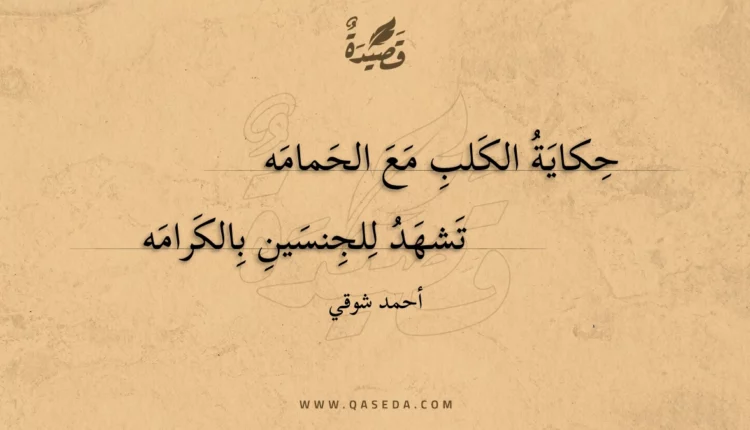 قَصِيْدَةٌ
حِكايَةُ الكَلبِ مَعَ الحَمامَه
تَشهَدُ لِلجِنسَينِ بِالكَرامَه
أحمد شوقي
WWW.QASEDA.COM